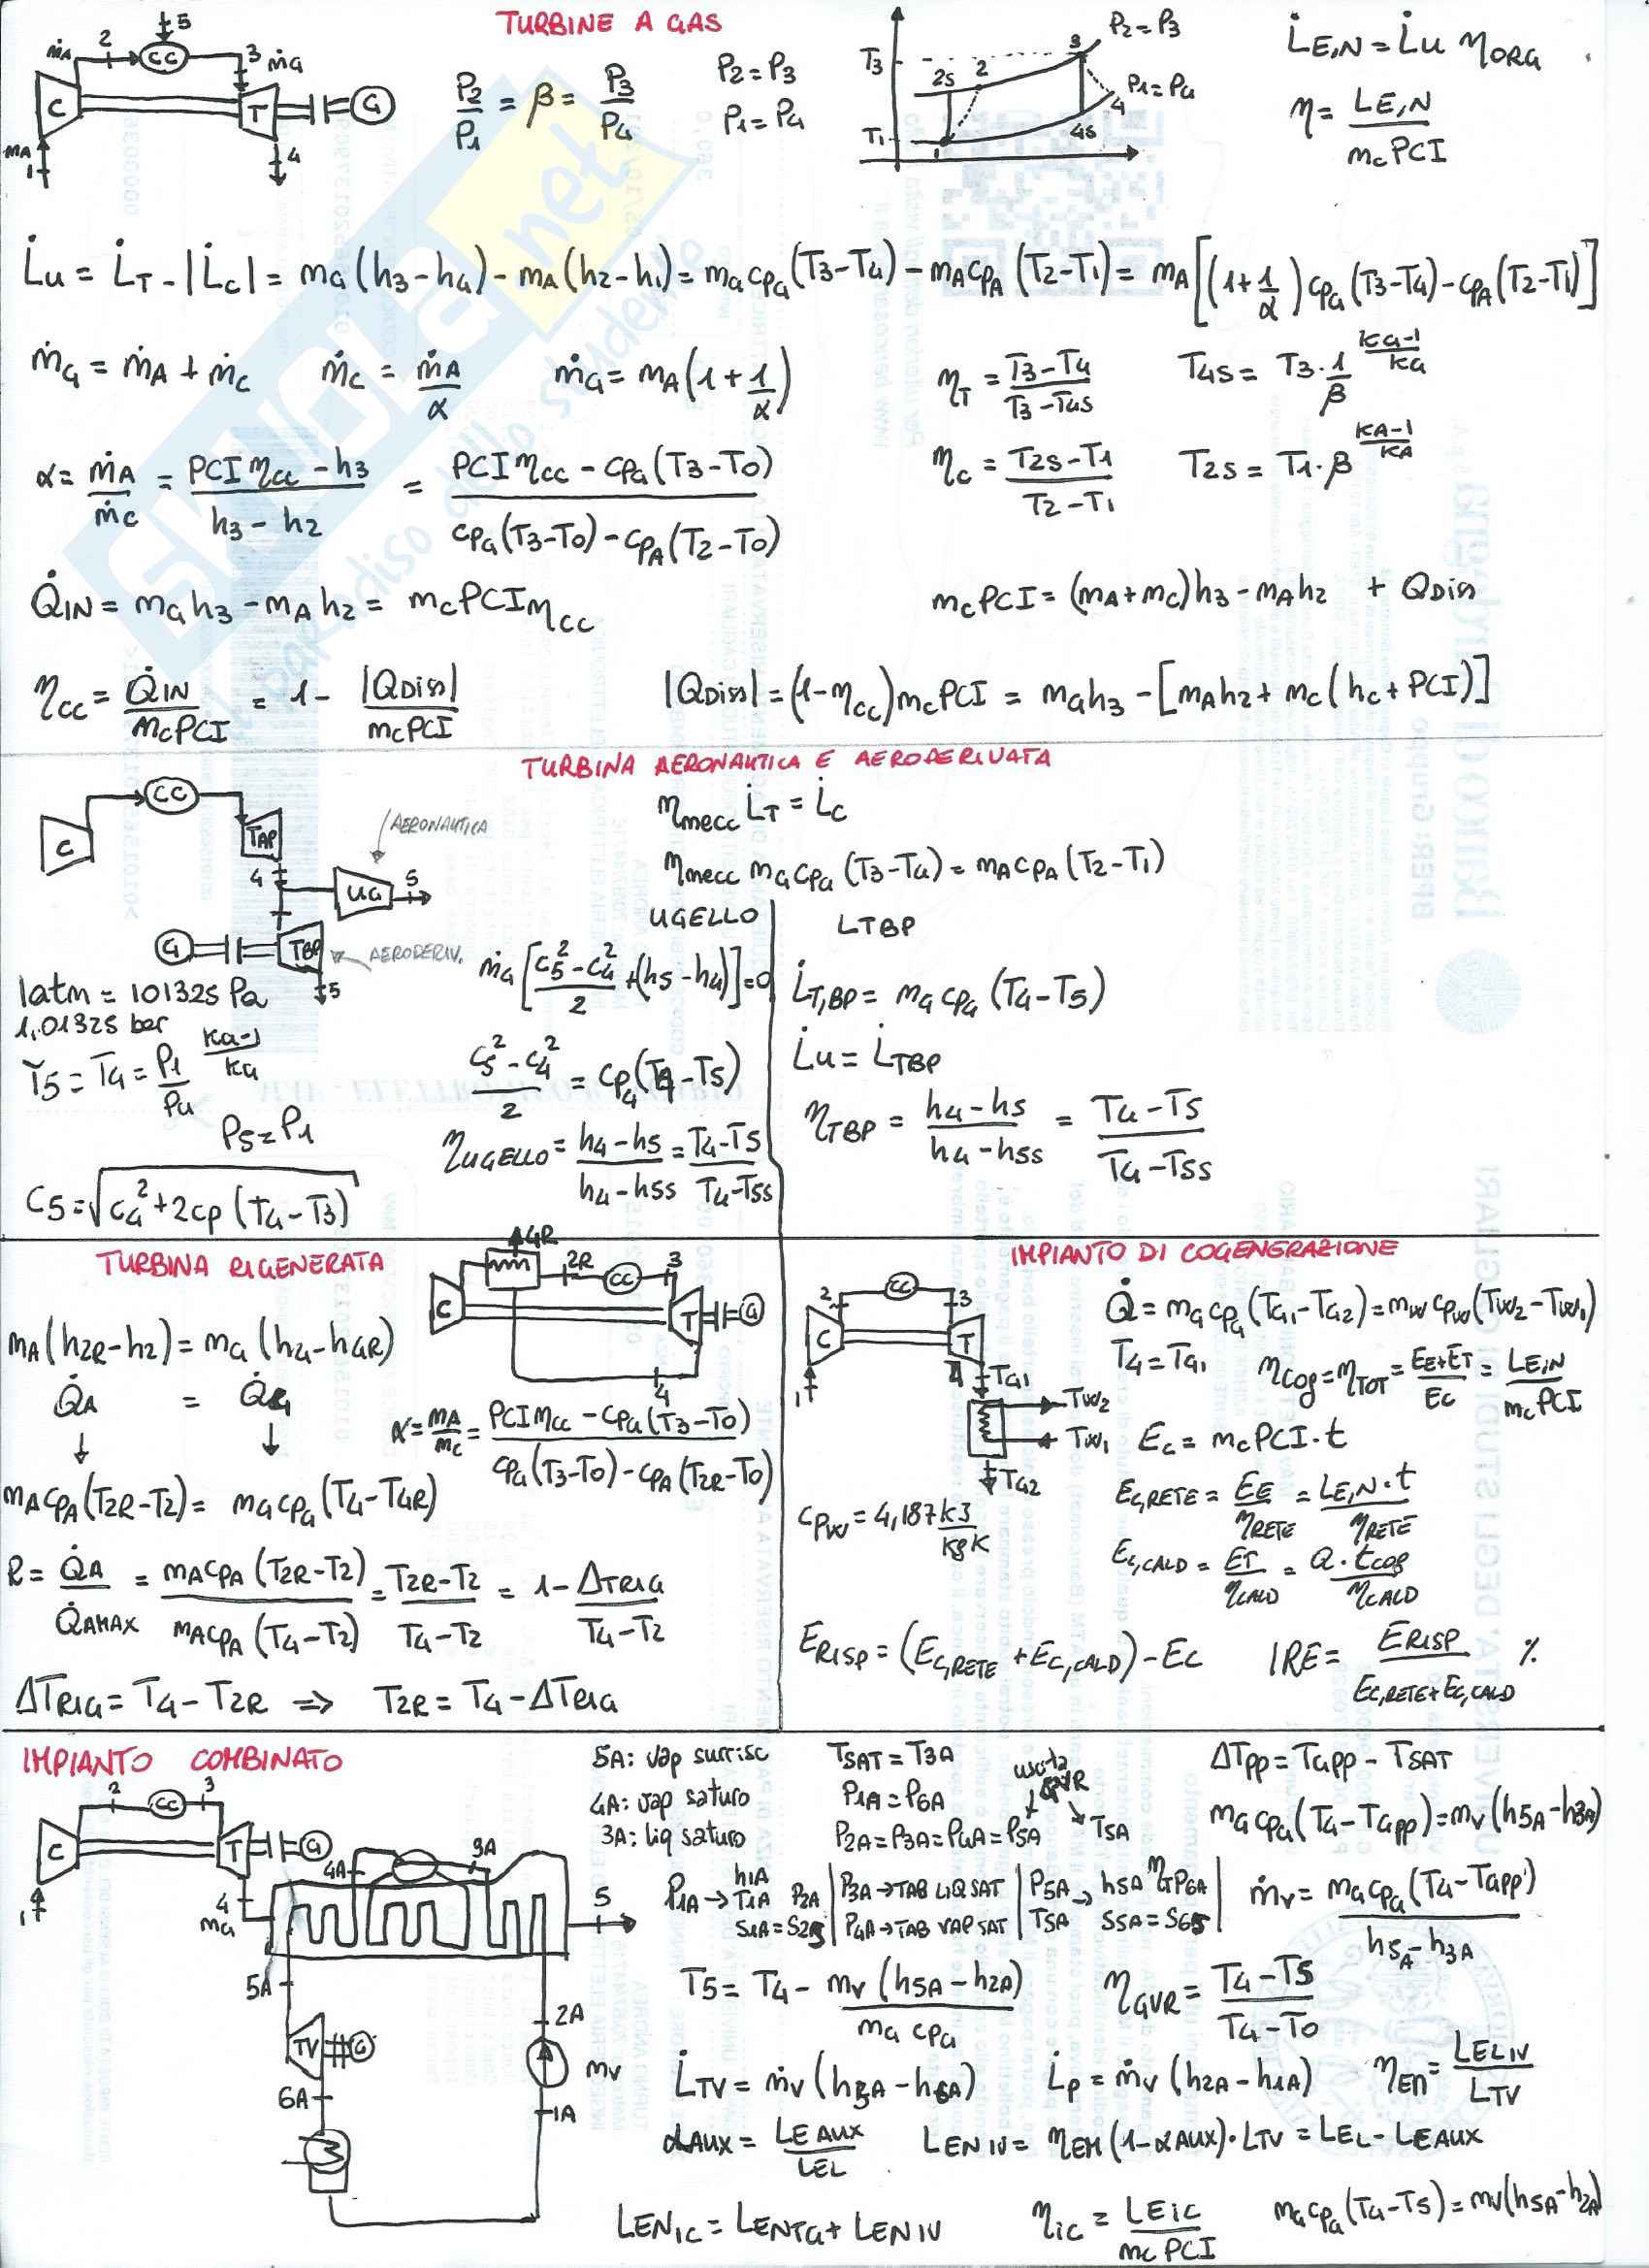 TURBINE A GAS
ṁA 2 CC 5 3 ṁG
C T G
mA 1 4
P2/P1 = β = P3/P4
P2 = P3
P1 = P4
T3 T1 2S 2 3 P2=P3 P1=P4 4 4S 1
L̇E,N = L̇u ηORG
η = LE,N / mc PCI
L̇u = L̇T - |L̇c| = mG(h3-h4) - mA(h2-h1) = mG cPG (T3-T4) - mA cPA (T2-T1) = mA[(1+1/α) cPG (T3-T4) - cPA (T2-T1)]
ṁG = ṁA + ṁc   ṁc = ṁA/α   ṁG = mA(1+1/α)
ηT = (T3-T4)/(T3-T4S)   T4S = T3 · 1/β ^ (KG-1)/KG
α = ṁA/ṁc = (PCI ηcc - h3)/(h3 - h2) = (PCI ηcc - cPG(T3-T0))/(cPG(T3-T0) - cPA(T2-T0))
ηc = (T2S-T1)/(T2-T1)   T2S = T1 · β ^ (KA-1)/KA
Q̇IN = mG h3 - mA h2 = mc PCI ηcc   mc PCI = (mA+mc)h3 - mA h2 + QDiss
ηcc = Q̇IN/(mc PCI) = 1 - |QDiss|/(mc PCI)   |QDiss| = (1-ηcc) mc PCI = mG h3 - [mA h2 + mc(hc + PCI)]
SKUOLA.net
il paradiso dello studente
TURBINA AERONAUTICA E AERODERIVATA
C CC TAP 4 UG 5 AERONAUTICA
G TBP AERODERIV. 5
ηmecc L̇T = L̇c
ηmecc mG cPG (T3-T4) = mA cPA (T2-T1)
1atm = 101325 Pa
1,01325 bar
T5 = T4 = P1/P4 ^ (KG-1)/KG
P5 = P1
C5 = √(C4² + 2cp (T4-T5))
UGELLO
ṁG [(C5²-C4²)/2 + (h5-h4)] = 0
(C5²-C4²)/2 = cPG (T4-T5)
ηUGELLO = (h4-h5)/(h4-h5S) = (T4-T5)/(T4-T5S)
LTBP
L̇T,BP = mG cPG (T4-T5)
L̇u = L̇TBP
ηTBP = (h4-h5)/(h4-h5S) = (T4-T5)/(T4-T5S)
TURBINA RIGENERATA
4R 2R CC 3 C T G 4
mA(h2R-h2) = mG(h4-h4R)
Q̇A = Q̇G
mA cPA (T2R-T2) = mG cPG (T4-T4R)
α = mA/mc = (PCI ηcc - cPG(T3-T0))/(cPG(T3-T0) - cPA(T2R-T0))
R = Q̇A/Q̇AMAX = mA cPA (T2R-T2)/(mA cPA (T4-T2)) = (T2R-T2)/(T4-T2) = 1 - ΔTRIG/(T4-T2)
ΔTRIG = T4 - T2R ⇒ T2R = T4 - ΔTRIG
IMPIANTO DI COGENERAZIONE
2 CC 3 C T 1 4 TG1 TW2 TW1 TG2
Q̇ = mG cPG (TG1-TG2) = mW cPW (TW2-TW1)
T4 = TG1   ηCog = ηTOT = (EE+ET)/EC = LE,N/(mc PCI)
Ec = mc PCI · t
CPW = 4,187 kJ/kg K
Ec,RETE = EE/ηRETE = LE,N · t/ηRETE
Ec,CALD = ET/ηCALD = Q · tcog/ηCALD
ERISP = (Ec,RETE + Ec,CALD) - Ec   IRE = ERISP/(Ec,RETE + Ec,CALD) %
IMPIANTO COMBINATO
2 CC 3 C T G 1 4 mG 4A 3A 5
5A TV G 6A 2A mv 1A
5A: vap surrisc
4A: vap saturo
3A: liq saturo
TSAT = T3A
P1A = P6A
P2A = P3A = P4A = P5A
uscita GVR T5A
ΔTPP = TGPP - TSAT
mG cPG (T4 - TGPP) = mv (h5A - h3A)
P1A → h1A T1A S1A = S2S P2A | P3A → TAB LIQ SAT P4A → TAB VAP SAT | P5A T5A → h5A S5A = S6S ηT P6A
ṁv = mG cPG (T4 - TGPP)/(h5A - h3A)
T5 = T4 - mv (h5A - h2A)/(mG cPG)   ηGVR = (T4-T5)/(T4-T0)
L̇TV = ṁv (h5A - h6A)   L̇P = ṁv (h2A - h1A)   ηEM = LELIV/LTV
αAUX = LEAUX/LEL   LENIV = ηEM (1-αAUX) · LTV = LEL - LEAUX
LENIC = LENTG + LENIV   ηIC = LEIC/(mc PCI)   mG cPG (T4-T5) = mv (h5A-h2A)